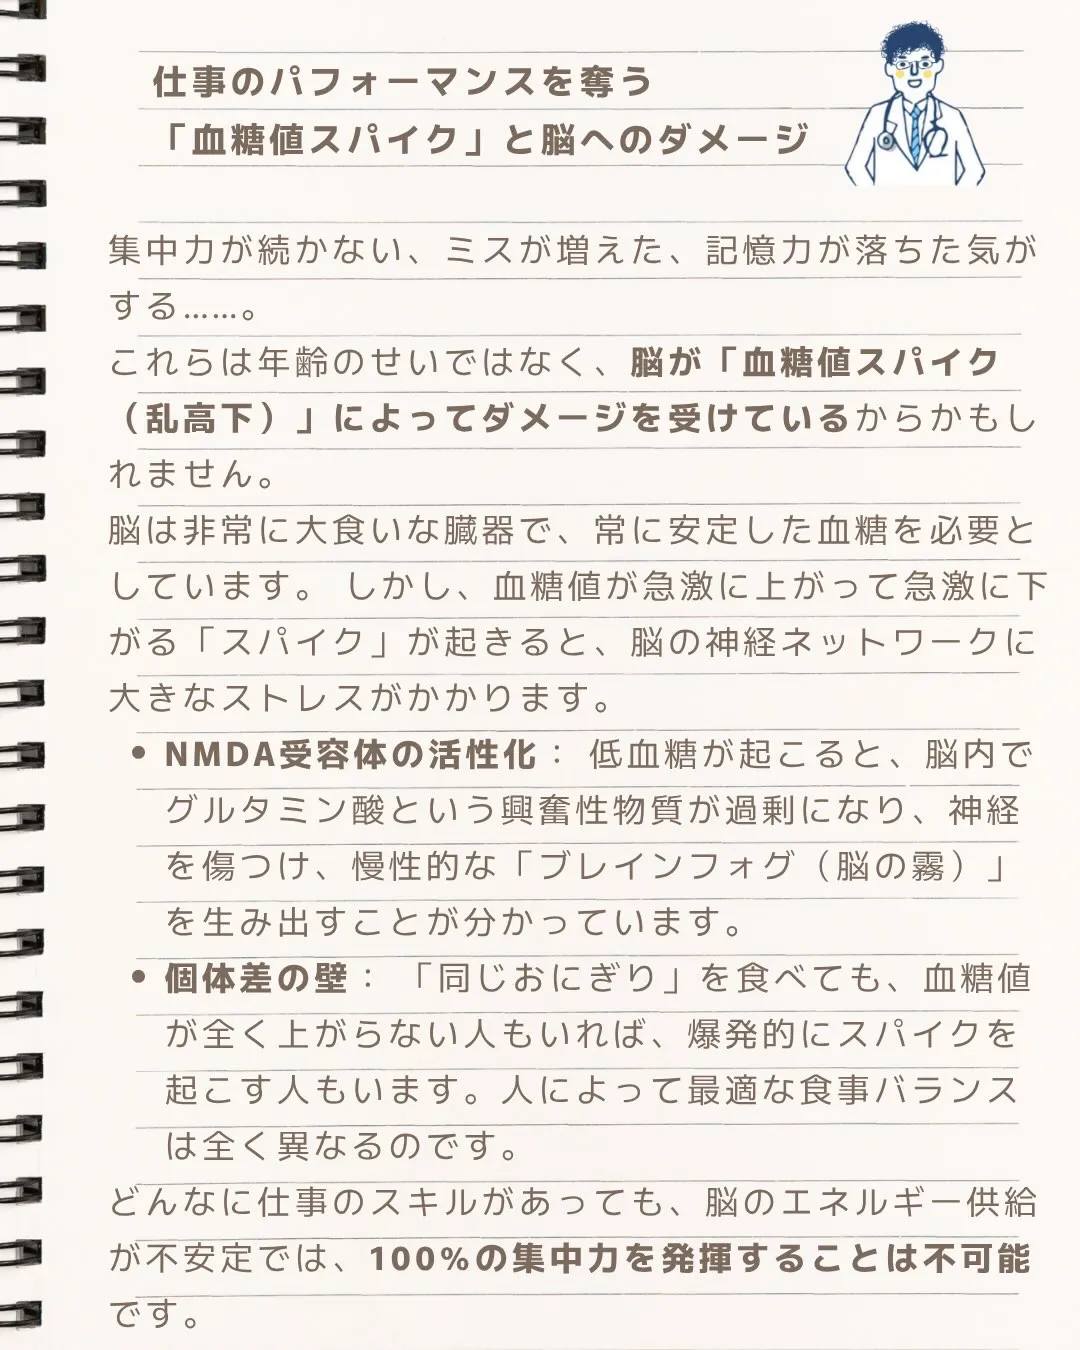 仕事のパフォーマンスを奪う
「血糖値スパイク」と脳へのダメージ
集中力が続かない、ミスが増えた、記憶力が落ちた気が
する……。
これらは年齢のせいではなく、脳が「血糖値スパイク
（乱高下）」によってダメージを受けているからかもし
れません。
脳は非常に大食いな臓器で、常に安定した血糖を必要と
しています。 しかし、血糖値が急激に上がって急激に下
がる「スパイク」が起きると、脳の神経ネットワークに
大きなストレスがかかります。
• NMDA受容体の活性化： 低血糖が起こると、脳内で
グルタミン酸という興奮性物質が過剰になり、神経
を傷つけ、慢性的な「ブレインフォグ（脳の霧）」
を生み出すことが分かっています。
• 個体差の壁： 「同じおにぎり」を食べても、血糖値
が全く上がらない人もいれば、爆発的にスパイクを
起こす人もいます。人によって最適な食事バランス
は全く異なるのです。
どんなに仕事のスキルがあっても、脳のエネルギー供給
が不安定では、100%の集中力を発揮することは不可能
です。